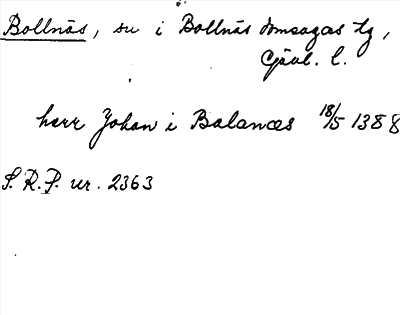 Bollnäs, su i Bollnäs domsagas tg,
Gävl. l.
herr Johan i Balanæs 18/5 1388
S.R.P. nr. 2363